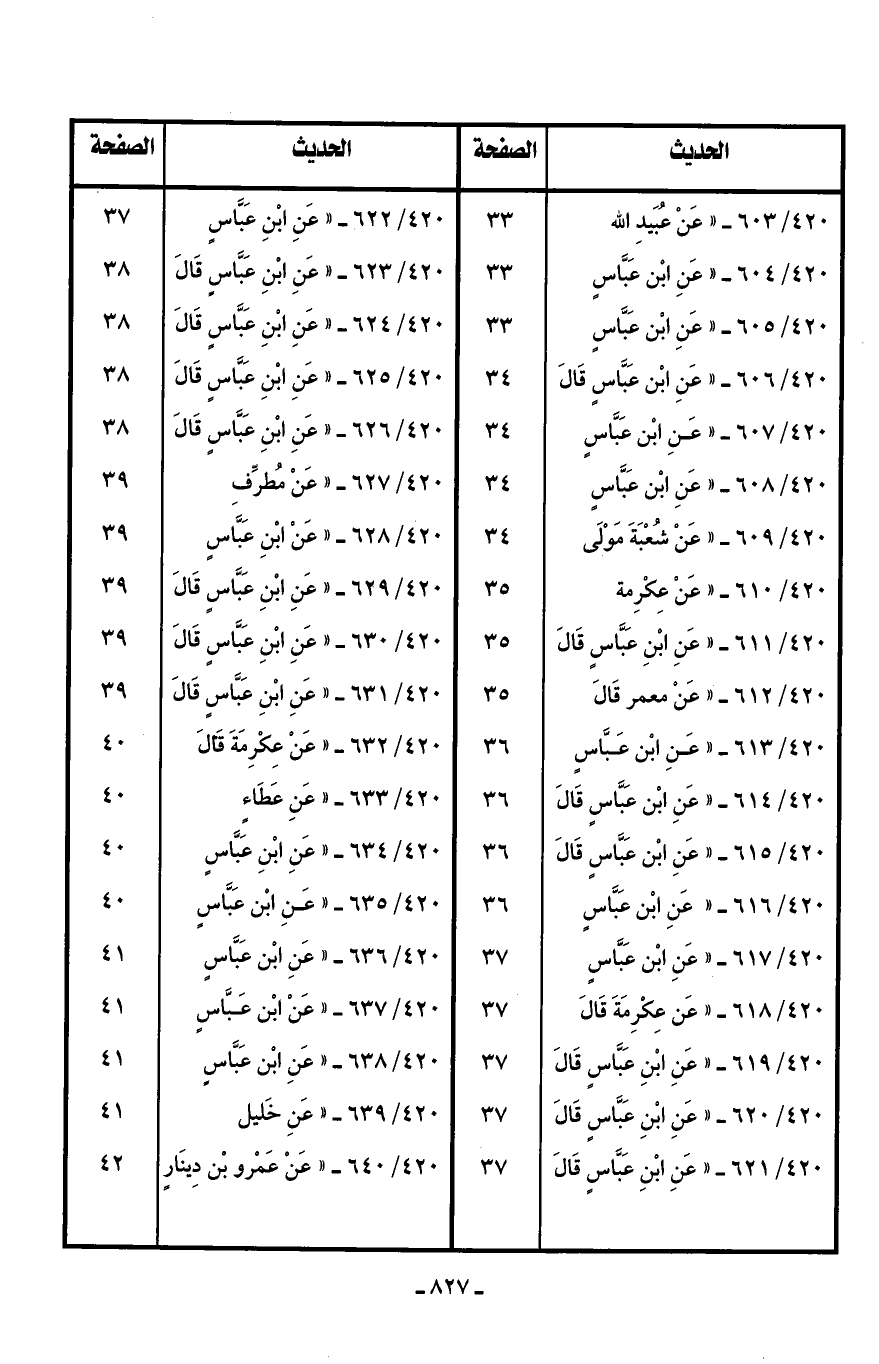 الحديث الصفحة الحديث الصفحة
٦٠٣/٤٢٠ ـ « عَنْ عُبَيدِ الله ٣٣ ٦٢٢/٤٢٠ ـ « عَنِ ابْنِ عَبَّاسٍ ٣٧
٦٠٤/٤٢٠ ـ « عَنِ ابْن عَبَّاسٍ ٣٣ ٦٢٣/٤٢٠ ـ « عَنِ ابْنِ عَبَّاسٍ قَالَ ٣٨
٦٠٥/٤٢٠ ـ « عَنِ ابْن عَبَّاسٍ ٣٣ ٦٢٤/٤٢٠ ـ « عَنِ ابْنِ عَبَّاسٍ قَالَ ٣٨
٦٠٦/٤٢٠ ـ « عَنِ ابْن عَبَّاسٍ قَالَ ٣٤ ٦٢٥/٤٢٠ ـ « عَنِ ابْنِ عَبَّاسٍ قَالَ ٣٨
٦٠٧/٤٢٠ ـ « عَـنِ ابْن عَبَّاسٍ ٣٤ ٦٢٦/٤٢٠ ـ « عَنِ ابْنِ عَبَّاسٍ قَالَ ٣٨
٦٠٨/٤٢٠ ـ « عَنِ ابْن عَبَّاسٍ ٣٤ ٦٢٧/٤٢٠ ـ « عَنْ مُطرِّفِ ٣٩
٦٠٩/٤٢٠ ـ « عَنْ شُعْبَةَ مَوْلَى ٣٤ ٦٢٨/٤٢٠ ـ « عَنْ ابْنِ عَبَّاسٍ ٣٩
٦١٠/٤٢٠ ـ « عَنْ عِكْرِمة ٣٥ ٦٢٩/٤٢٠ ـ « عَنِ ابْنِ عَبَّاسٍ قَالَ ٣٩
٦١١/٤٢٠ ـ « عَنِ ابْنِ عَبَّاسٍ قَالَ ٣٥ ٦٣٠/٤٢٠ ـ « عَنِ ابْنِ عَبَّاسٍ قَالَ ٣٩
٦١٢/٤٢٠ ـ « عَنْ معمر قَالَ ٣٥ ٦٣١/٤٢٠ ـ « عَنِ ابْنِ عَبَّاسٍ قَالَ ٣٩
٦١٣/٤٢٠ ـ « عَـنِ ابْن عَـبَّاسٍ ٣٦ ٦٣٢/٤٢٠ ـ « عَنْ عِكْرِمَةَ قَالَ ٤٠
٦١٤/٤٢٠ ـ « عَنِ ابْن عَبَّاسٍ قَالَ ٣٦ ٦٣٣/٤٢٠ ـ « عَنِ عَطَاءٍ ٤٠
٦١٥/٤٢٠ ـ « عَنِ ابْن عَبَّاسٍ قَالَ ٣٦ ٦٣٤/٤٢٠ ـ « عَنِ ابْنِ عَبَّاسٍ ٤٠
٦١٦/٤٢٠ ـ « عَنِ ابْن عَبَّاسٍ ٣٦ ٦٣٥/٤٢٠ ـ « عَـنِ ابْن عَبَّاسٍ ٤٠
٦١٧/٤٢٠ ـ « عَنِ ابْن عَبَّاسٍ ٣٧ ٦٣٦/٤٢٠ ـ « عَنِ ابْن عَبَّاسٍ ٤١
٦١٨/٤٢٠ ـ « عَن عِكْرِمَةَ قَالَ ٣٧ ٦٣٧/٤٢٠ ـ « عَنْ ابْن عَـبَّاسٍ ٤١
٦١٩/٤٢٠ ـ « عَنِ ابْنِ عَبَّاسٍ قَالَ ٣٧ ٦٣٨/٤٢٠ ـ « عَنِ ابْن عَبَّاسٍ ٤١
٦٢٠/٤٢٠ ـ « عَنِ ابْنِ عَبَّاسٍ قَالَ ٣٧ ٦٣٩/٤٢٠ ـ « عَنِ خَليل ٤١
٦٢١/٤٢٠ ـ « عَنِ ابْنِ عَبَّاسٍ قَالَ ٣٧ ٦٤٠/٤٢٠ ـ « عَنْ عَمْرو بْن دِينَارٍ ٤٢
ـ ٨٢٧ ـ